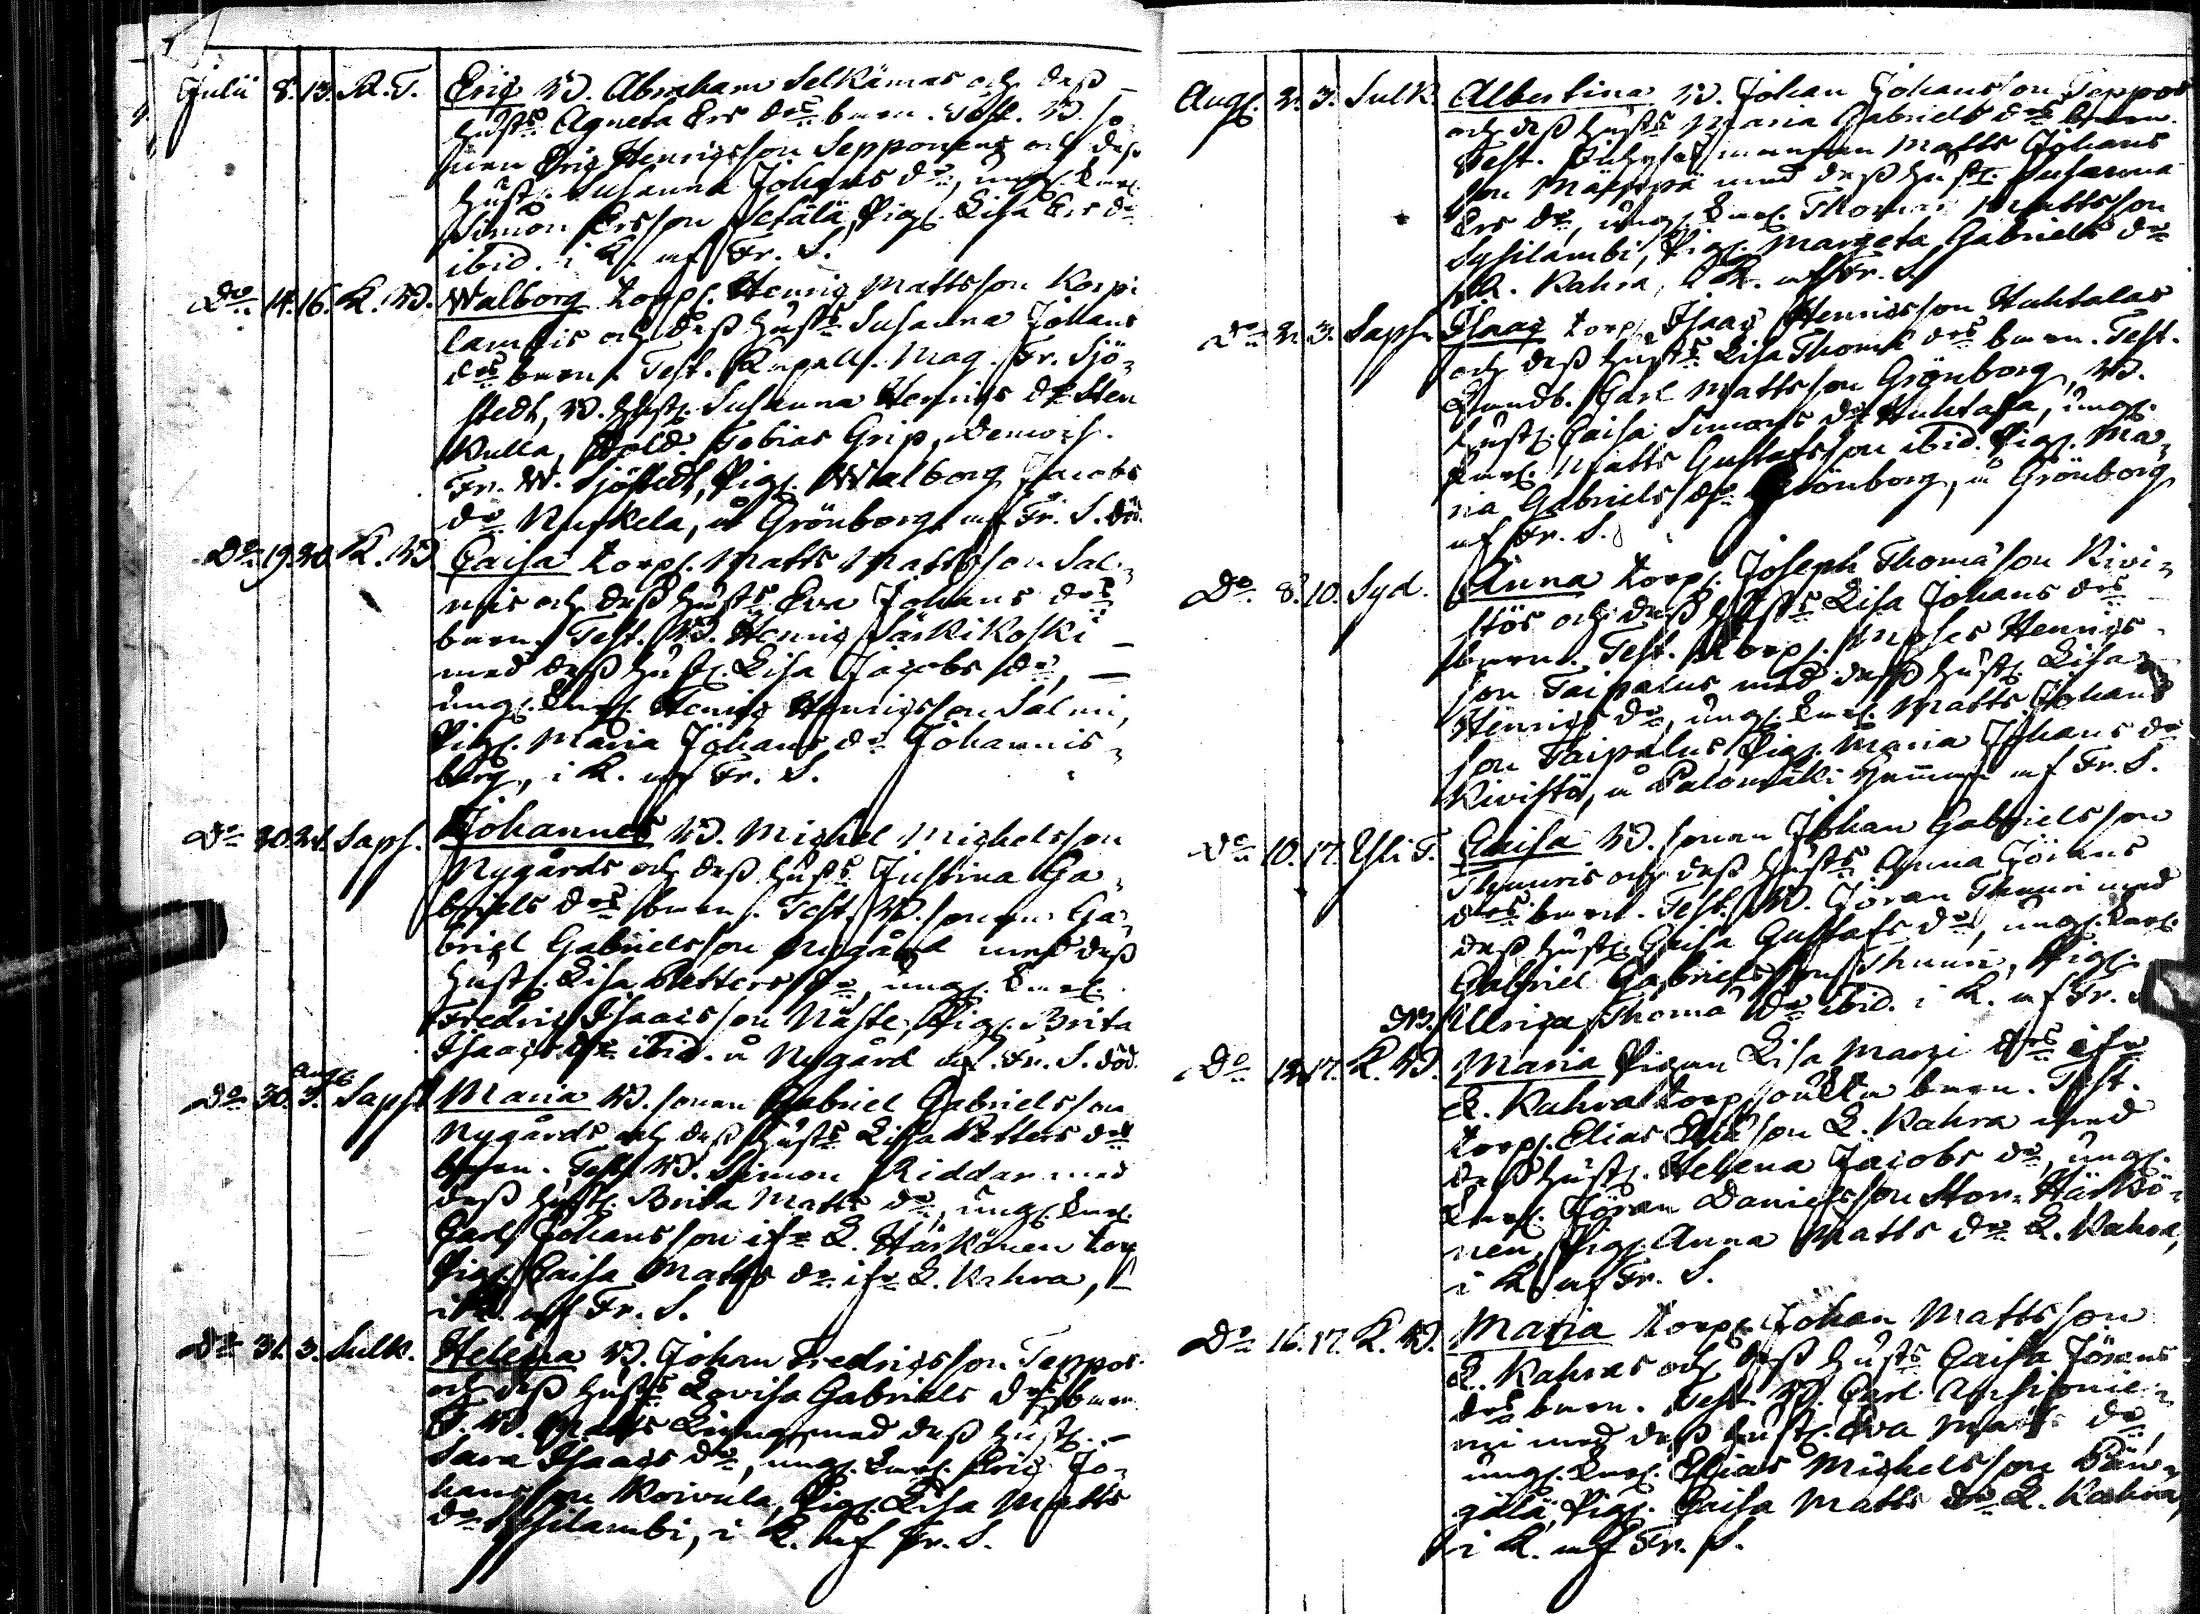 Julii 8. 13. R. T. Eric B. Abraham Selkämas och dess
hust:s Agneta Ers d:rs barn. Test. B. so
nen Eric Henricsson Sepponens och dess
hust. Susanna Johans d:r, ungk. Carl.
Simon Ersson Setälä, Pig. Lisa Ers d:r
ibid. i K. af Fr. S.
D:o 14. 16. K. B. Walborg Torp. Henric Mattsson Korpi
lambis och dess hust:s Susanna Johans
d:rs barn. Test. Kapell. Mag. Fr. Sjö-
stedt, B. hust. Susanna Henrics d:r Sten
kulla, Tobias Grip, Demois.
Fr. W. Sjöstedt, Pig. Walborg Jacobs
d:r Ruskela, å Grönborg af Fr. S. död.
D:o 19. 20. K. B. Caisa Torp. Matts Mattsson Sal-
mis och dess hust:s Eva Johans d:rs
barn. Test. B. Henric Särkikoski
med dess hust. Lisa Jacobs d:r,
ungk. Henric Henricsson Salmi,
Pig. Maria Johans d:r Johannis-
berg, i K. af Fr. S.
D:o 20. 24. Saps. Johannes B. Michel Michelsson
Nygårds och dess hust:s Justina Ga-
briels d:rs barn. Test. B. sonen Ga-
briel Gabrielsson Nygård med dess
hust. Lisa Petters d:r, ungk.
Fredric Isaacsson Näste, Pig. Brita
Isaacs d:r ibid. å Nygård af Fr. S. död.
Aug.
D:o 30. 3. Saps. Maria B. sonen Gabriel Gabrielsson
Nygårds och dess hust:s Lisa Petters d:rs
barn. Test. B. Simon Riddar med
dess hust. Brita Matts d:r, ungk.
Carl Johansson ifr. L. Härkönen torp
Pig. Caisa Matts d:r ifr. L. Kahra,
i K. af Fr. S.
D:o 31. 3. Sulk. Helena B. Johan Fredricsson Teppos
och dess hust:s Lovisa Gabriels d:rs barn
T. B. Matts med dess hust.
Sara Isaacs d:r, ungk. Eric Jo-
hansson Koivula, Pig. Lisa Matts
d:r Sysilambi, i K. af Fr. S.
Aug. 2. 3. Sulk. Albertina B. Johan Johansson Teppos
och dess hust:s Maria Gabriels d:rs barn.
Test. Matts Johans
son Mäenpä med dess hust. Susanna
Ers d:r, ungk. Thomas Mattsson
Sysilambi, Pig. Margeta Gabriels d:r
L. Kahra, i K. af Fr. S.
D:o 2. 3. Saps. Isaac Torp. Isaac Henricsson Huhtalas
och dess hust:s Lisa Thomæ d:rs barn. Test.
Carl Mattsson Grönborg, B.
hust. Caisa Simons d:r Huhtala, ungk.
Matts Gustafsson ibid. Pig. Ma-
ria Gabriels d:r Grönborg, å Grönborg
af Fr. S.
D:o 8. 10. Syd. Anna Torp. Joseph Thomasson Kivi-
stös och dess hust:s Lisa Johans d:rs
barn. Test. Torp. Moses Henrics
son Taipalus med dess hust. Lisa
Henrics d:r, ungk. Matts Johans
son Taipalus, Pig. Maria Johans d:r
Kivistö, å Palomäki hemman af Fr. S.
D:o 10. 17. Yli T. Caisa B. sonen Johan Gabrielsson
Thuuris och dess hust:s Anna Jörans
d:rs barn. Test. B. Jöran Thuuri med
dess hust. Caisa Gustafs d:r, ungk.
Gabriel Gabrielsson Thuuri, Pig.
Ulrica Thomæ d:r ibid. i K. af Fr. S.
NB.
D:o 12. 17. K. B. Maria Pigan Lisa Marci d:rs ifr.
L. Kahra torp oäkta barn. Test.
torp. Elias Eliæson L. Kahra med
dess hust. Helena Jacobs d:r, ungk.
Jöran Danielsson Stor-Härkö-
nen, Pig. Anna Matts d:r L. Kahra,
i K. af Fr. S.
D:o 16. 17. K. B. Maria Torp. Johan Mattsson
L. Kahras och dess hust:s Caisa Jörans
d:rs barn. Test. B. Carl
mi med dess hust. Eva Matts d:r,
ungk. Elias Michelsson Pän-
gälä, Pig. Caisa Matts d:r L. Kahra,
i K. af Fr. S.